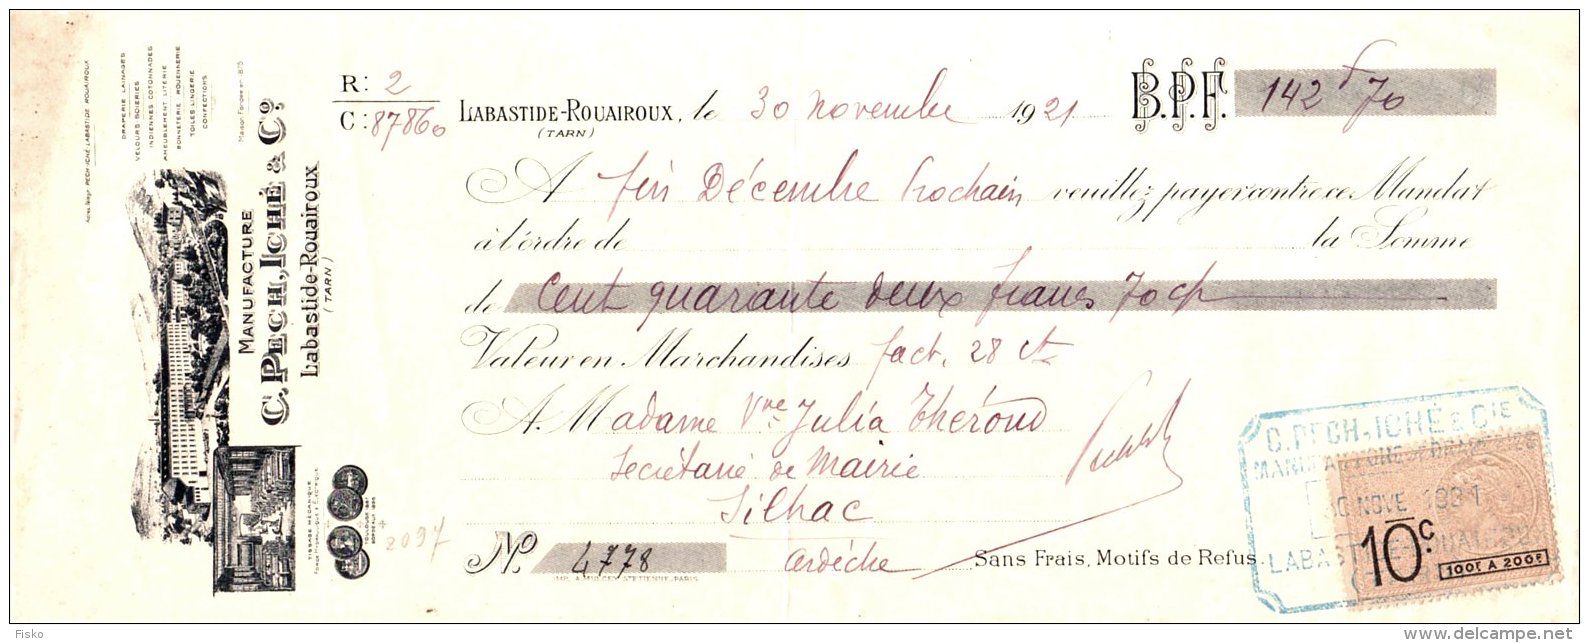 Adres. Télégr. PECH-ICHÉ-LABASTIDE ROUAIROUX
DRAPERIE LAINAGES
VELOURS SOIERIES
INDIENNES COTONNADES
AMEUBLEMENT LITERIE
BONNETERIE ROUENNERIE
TOILES LINGERIE
CONFECTIONS
Maison Fondée en 1875
MANUFACTURE
C. PECH, ICHÉ & Co.
Labastide-Rouairoux
(TARN)
TISSAGE MÉCANIQUE
FORCE HYDRAULIQUE & ÉLECTRIQUE
TOULOUSE 1887
BORDEAUX 1895
R: 2
C: 87860
2097
LABASTIDE-ROUAIROUX, le 30 novembre 1921 B.P.F. 142 f 70
(TARN)
A fin Décembre prochain veuillez payer contre ce Mandat
à l'ordre de la Somme
de Cent quarante deux francs 70 c
Valeur en Marchandises fact. 28 ct
A Madame Vve Julia Théroud
Secrétaire de Mairie
Silhac
ardèche
No. 4778
Sans Frais, Motifs de Refus.
C. PECH, ICHÉ & CIE
NOVE 1921
LABAST
10c.
100F A 200F
Fisko
delcampe.net